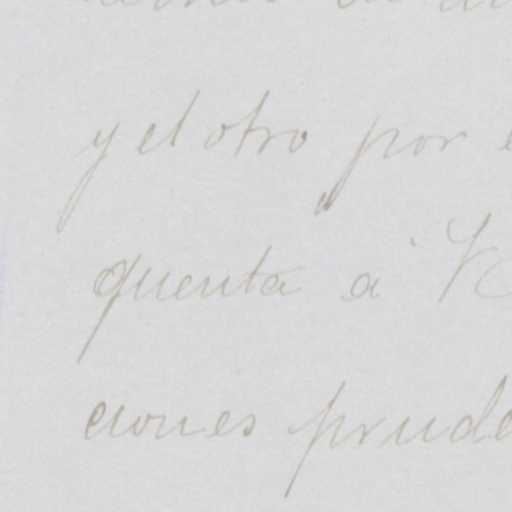 y el otro por
quenta á
ciones prude